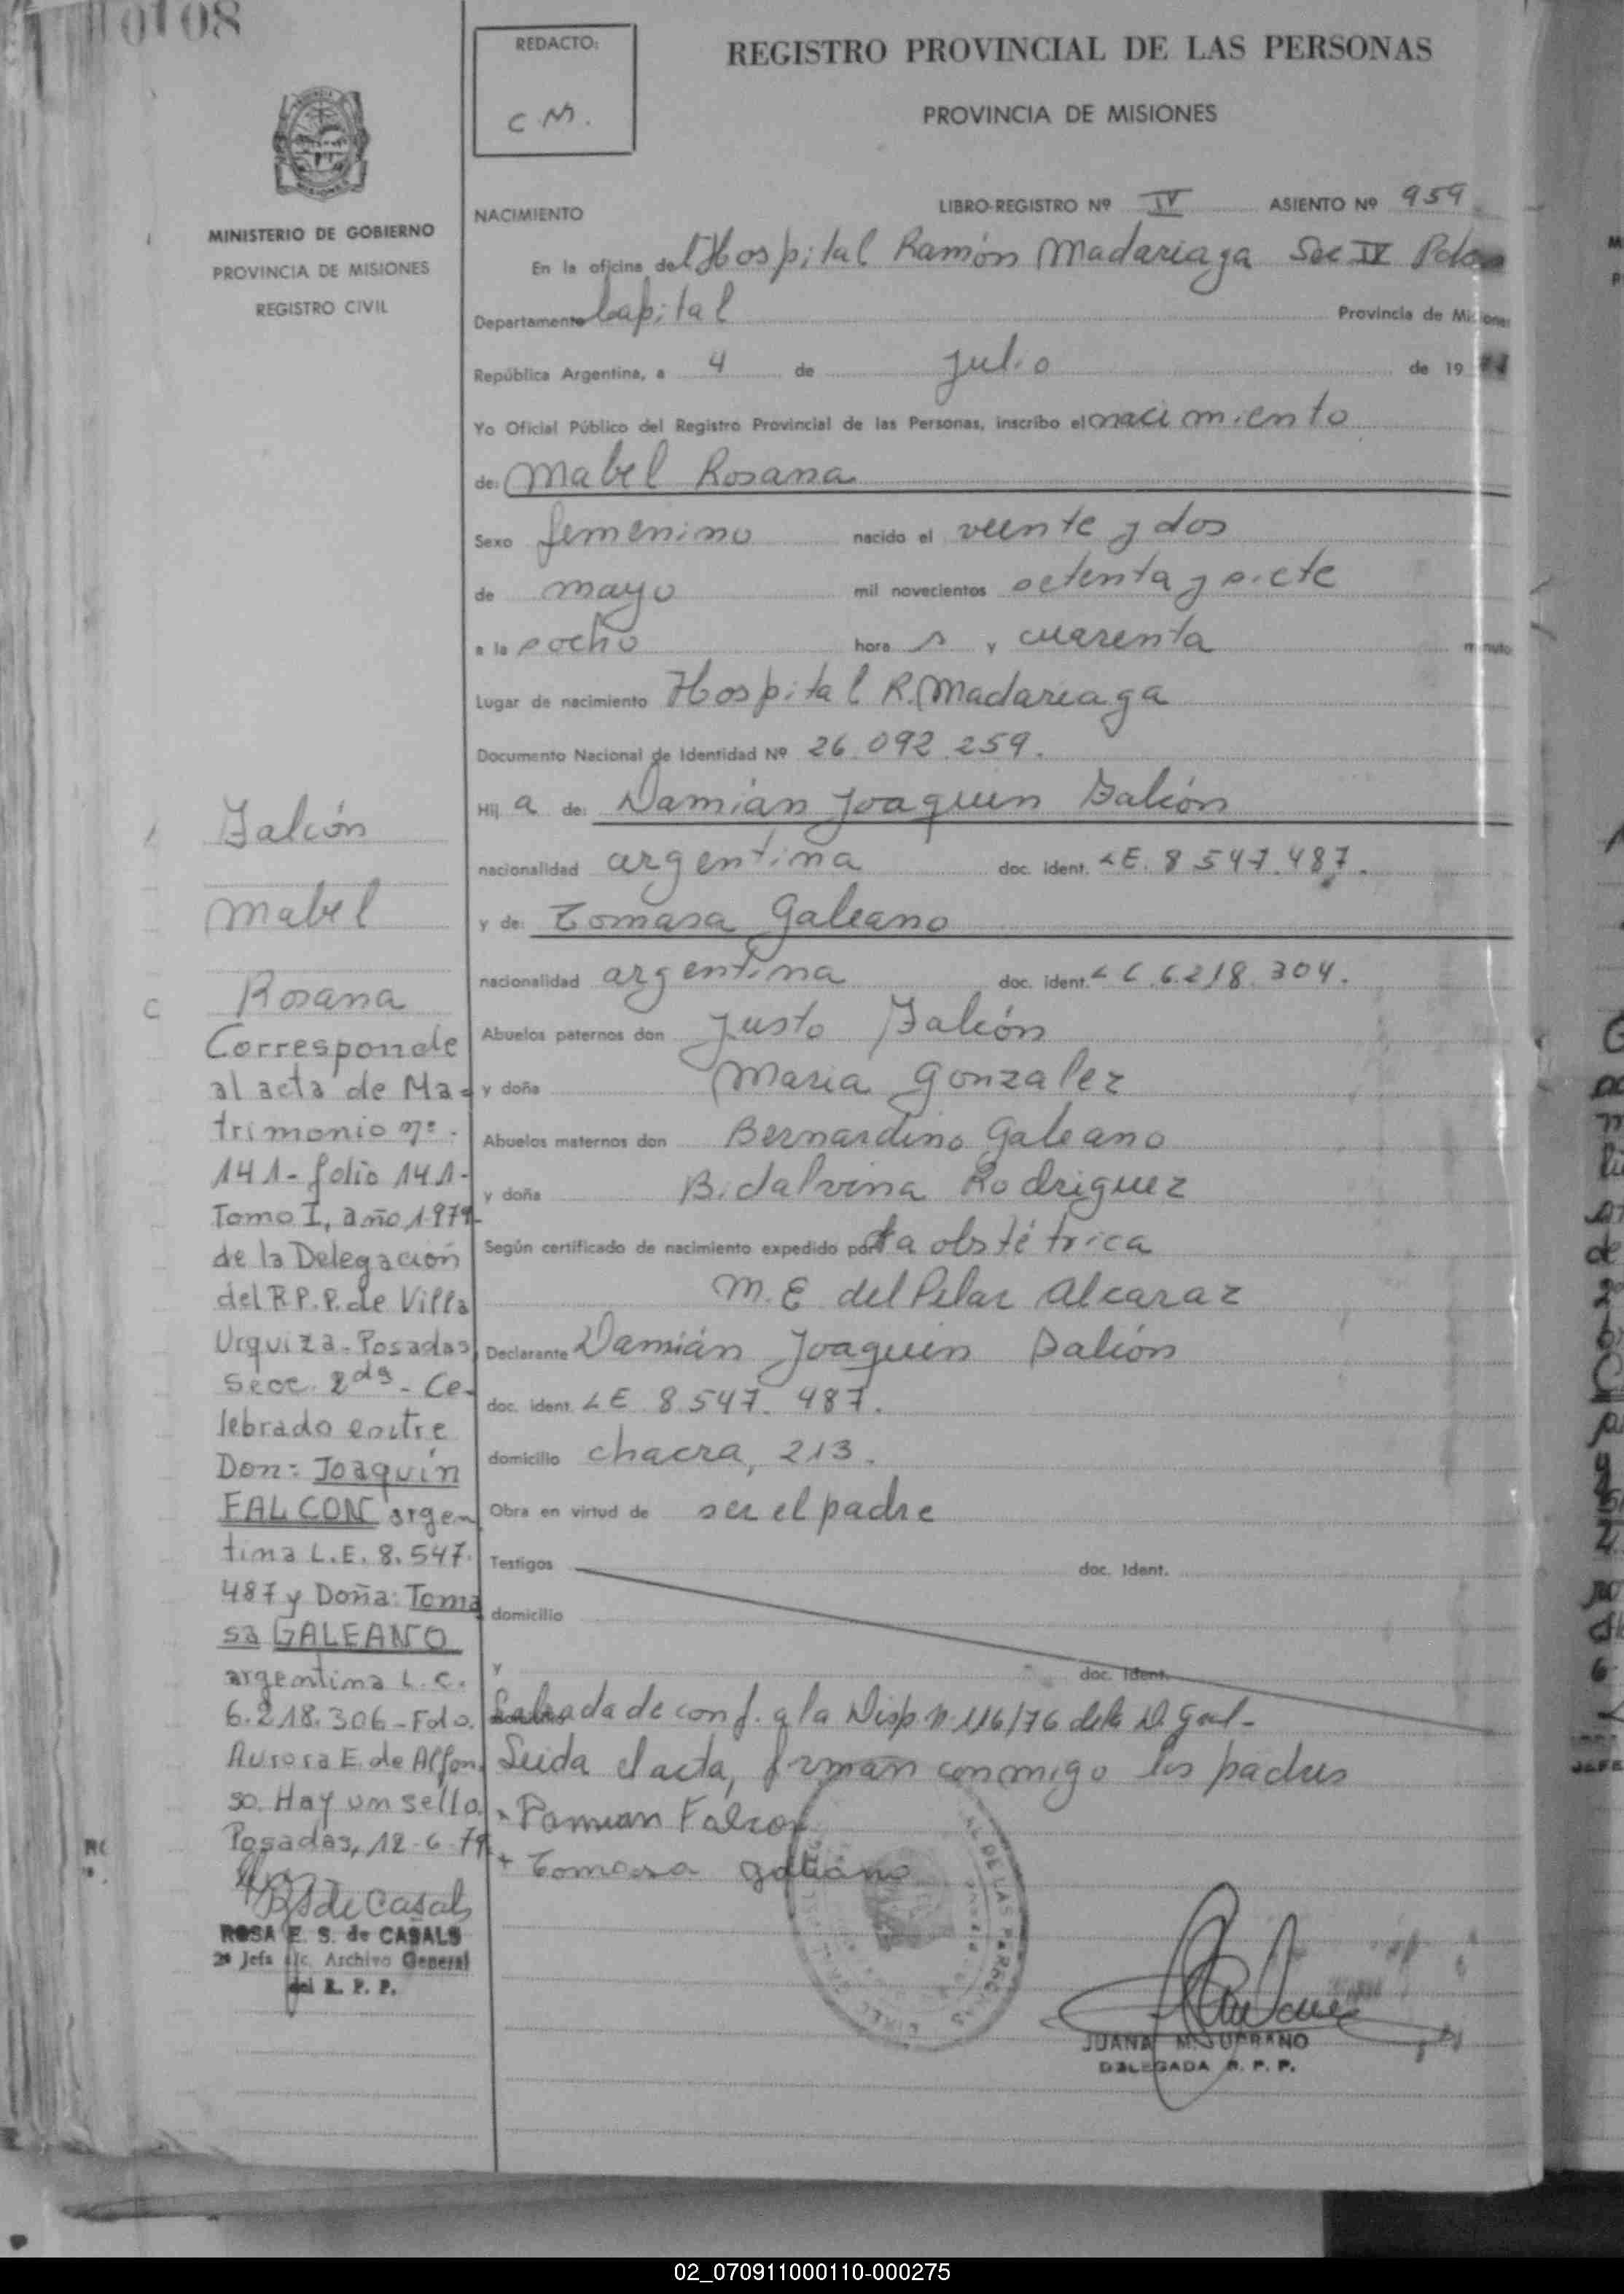 10108
REDACTO:
C.M.
REGISTRO PROVINCIAL DE LAS PERSONAS
PROVINCIA DE MISIONES
MINISTERIO DE GOBIERNO
PROVINCIA DE MISIONES
REGISTRO CIVIL
NACIMIENTO
LIBRO-REGISTRO Nº IV ASIENTO Nº 959
En la oficina del Hospital Ramón Madariaga Sec IV Pdas
Departamento Capital Provincia de Misiones
República Argentina, a 4 de Julio de 19
Yo Oficial Público del Registro Provincial de las Personas, inscribo el nacimiento
de: Mabel Rosana
Sexo femenino nacido el veinte y dos
de mayo mil novecientos setenta y siete
a las ocho hora s y cuarenta minuto
Lugar de nacimiento Hospital R. Madariaga
Documento Nacional de Identidad Nº 26.092.259.
Hij a de: Damián Joaquin Falcón
nacionalidad argentina doc. ident. LE. 8547.487.
y de: Tomasa Galeano
nacionalidad argentina doc. ident. LC.6.218.304.
Abuelos paternos don Justo Falcón
y doña Maria Gonzalez
Abuelos maternos don Bernardino Galeano
y doña Bidalvina Rodriguez
Según certificado de nacimiento expedido por la obstétrica
M.E del Pilar Alcaraz
Declarante Damián Joaquin Falcón
doc. ident. LE 8.547.487.
domicilio chacra, 213.
Obra en virtud de ser el padre
Testigos doc. Ident.
domicilio
y doc. Ident.
de conf. a la Disp. n. 116/76 de la D. Gral-
Leida el acta, firman conmigo los padres
Damian Falcon
+ Tomasa galeano
JUANA M. SUPRANO
DELEGADA R. P. P.
Falcón
Mabel
Rosana
Corresponde
al acta de Ma-
trimonio nº.
141- folio 141-
Tomo I, año 1979-
de la Delegación
del R.P.P. de Villa
Urquiza-Posadas
Secc. 2da - Ce-
lebrado entre
Don: Joaquín
FALCON argen
tina L.E. 8.547.
487 y Doña: Toma
sa GALEANO
argentina L.C.
6.218.306-Fdo.
Aurora E. de Alfon
so. Hay un sello.
Posadas, 12-6-79.
ES de Casals
ROSA E. S. de CASALS
2ª Jefa a/c. Archivo General
del R. P. P.
02_070911000110-000275